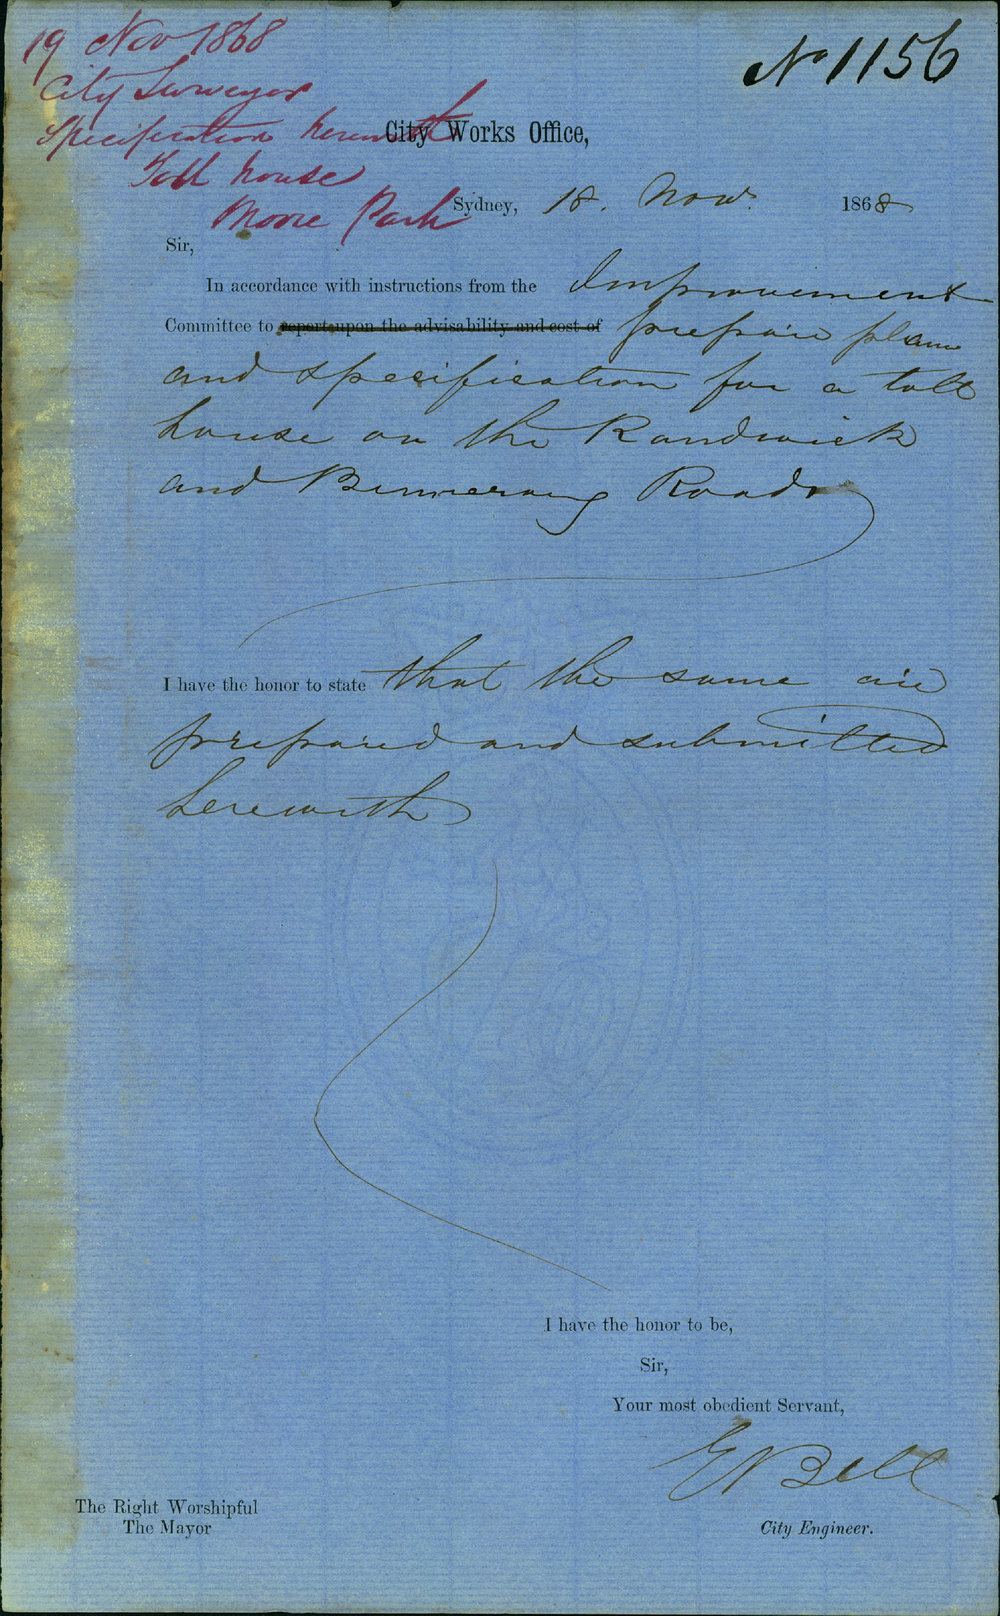 19 Nov 1868
City Surveyor
Specification herewith
Toll house
Moore Park
No 1156
City Works Office,
Sydney, 18. Nov. 1868
Sir,
In accordance with instructions from the Improvement
Committee to report upon the advisability and cost of prepare plan
and specification for a toll
house on the Randwick
and Bunnerong Roads
I have the honor to state that the same are
prepared and submitted
herewith
I have the honor to be,
Sir,
Your most obedient Servant,
E Bell
The Right Worshipful
The Mayor
City Engineer.